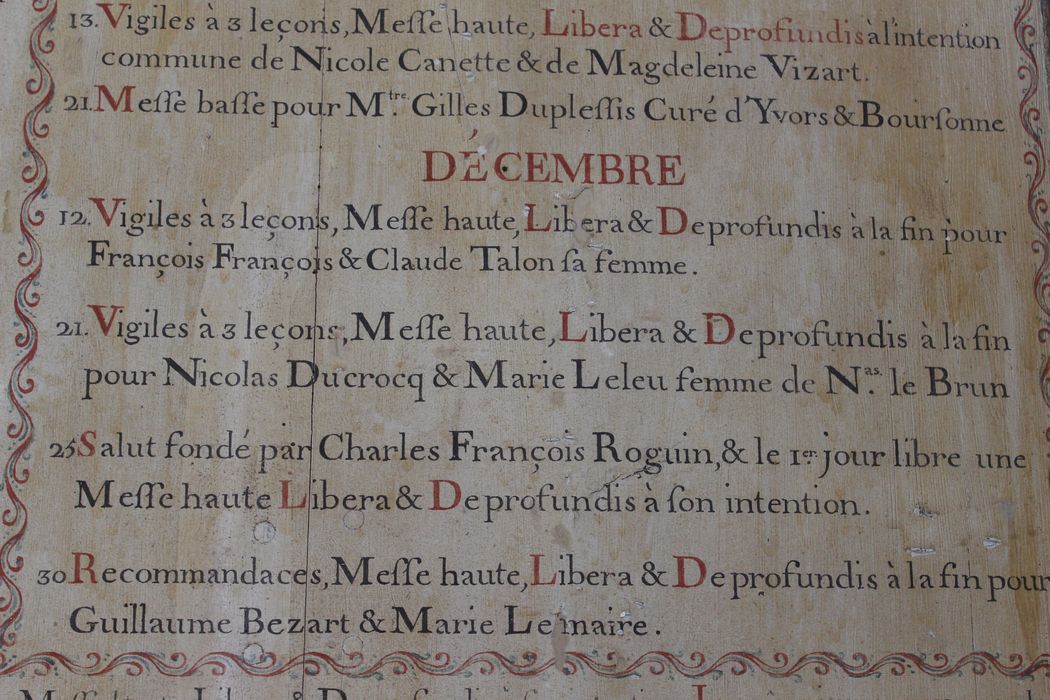 13. Vigiles à 3 leçons, Meſſe haute, Libera & Deprofundis à l'intention
commune de Nicole Canette & de Magdeleine Vizart.
21. Meſſe baſſe pour M.tre Gilles Dupleſſis Curé d'Yvors & Bourſonne
DÉCEMBRE
12. Vigiles à 3 leçons, Meſſe haute, Libera & Deprofundis à la fin pour
François François & Claude Talon ſa femme.
21. Vigiles à 3 leçons, Meſſe haute, Libera & Deprofundis à la fin
pour Nicolas Ducrocq & Marie Leleu femme de N.as le Brun
25 Salut fondé par Charles François Roguin, & le 1er jour libre une
Meſſe haute Libera & Deprofundis à ſon intention.
30 Recommandaces, Meſſe haute, Libera & Deprofundis à la fin pour
Guillaume Bezart & Marie Lemaire.